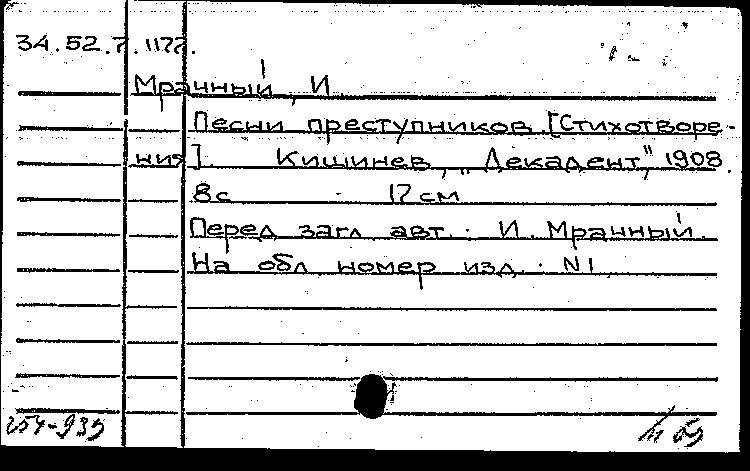 34.52.7.1177.
Мранный, И
Песни преступников. [Стихотворе-
ния]. Кишинев, „Декадент", 1908.
8с 17 см
Перед загл авт.: И. Мранный.
На обл номер изд.: N1
254-935